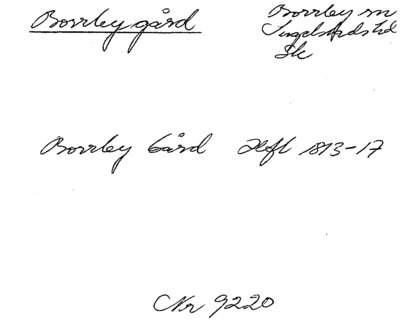 Borrby gård
Borrby sn
Ingelstads hd
Sk
Borrby Gård Hfl 1813-17
Nr 9220